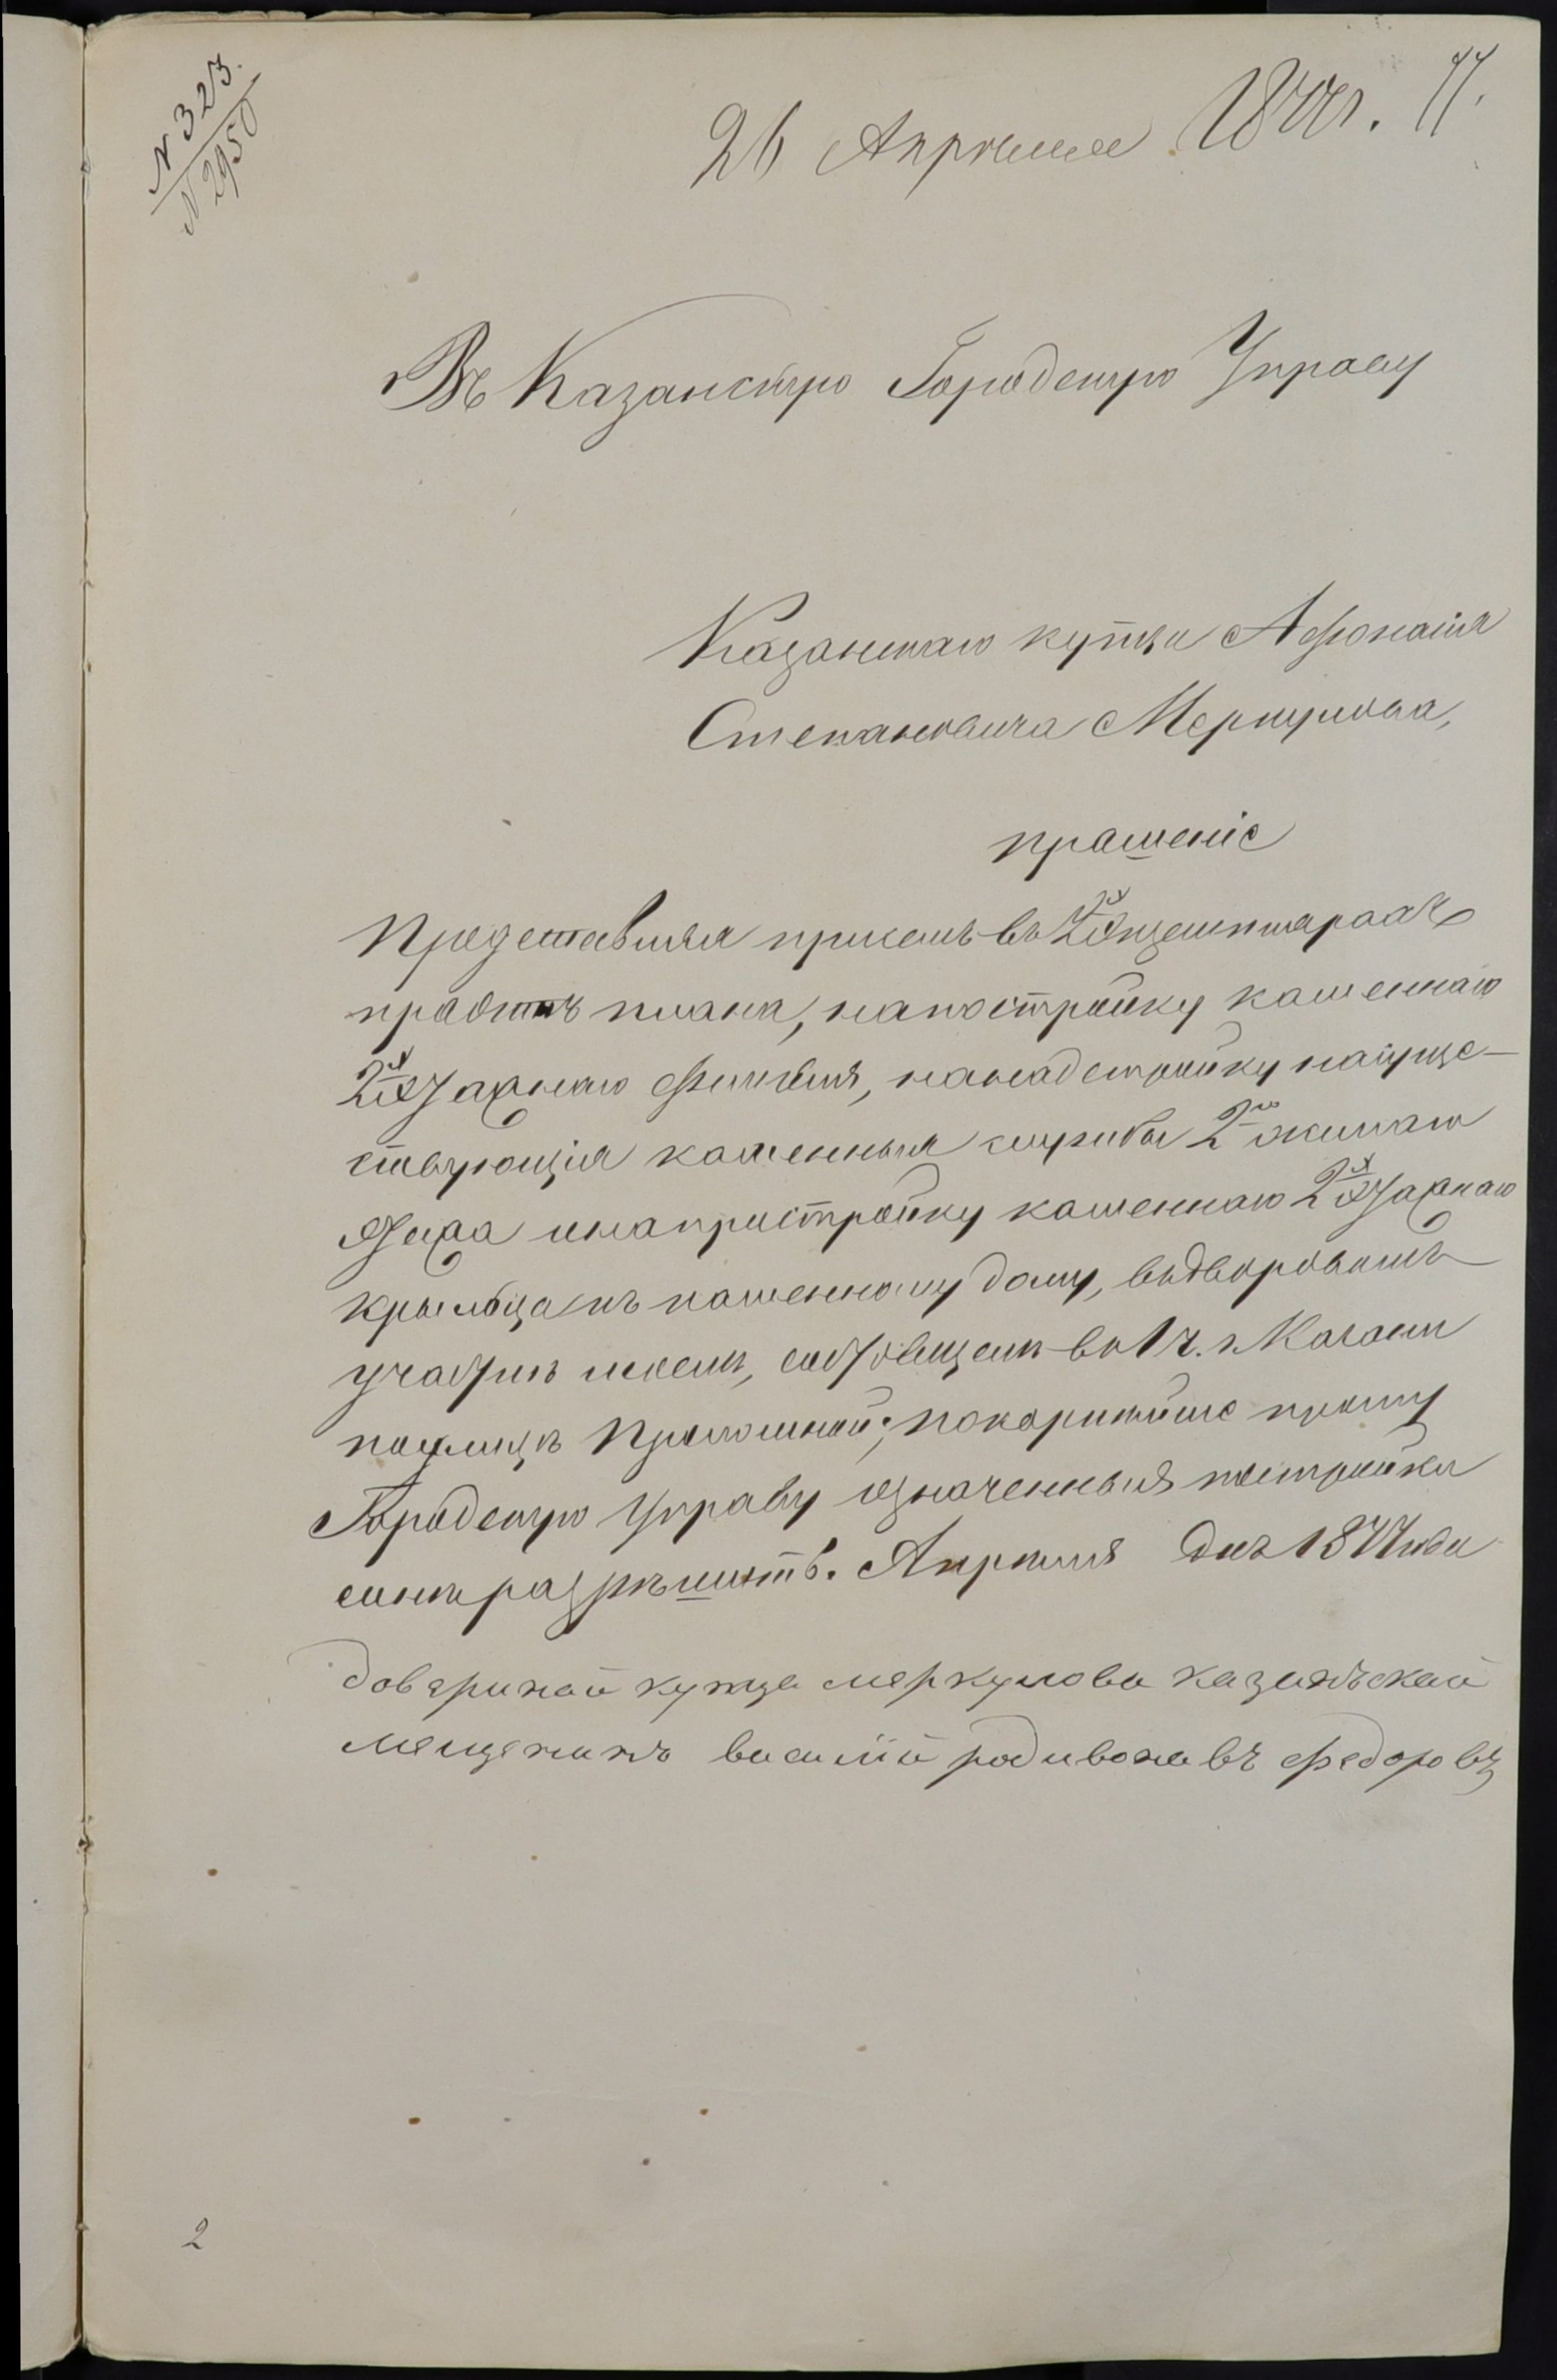 N 323.
N 2950
26 Апрѣля 1877 г. 77.
Въ Казанскую Городскую Управу
Казанскаго купца Афонасія
Степановича Меркулова,
прашеніе
Представляя присемъ въ 2хъ экземплярахъ
праэктъ плана, напостройку каменнаго
2хъ этажнаго флигеля, нанадстройку насуще-
ствующія каменныя службы 2го жилаго
этажа инапристройку каменнаго 2хъ этажнаго
крыльца къ каменному дому, въдворовомъ
участкѣ моемъ, состоящемъ въ 1 ч. г. Казани
поулицѣ Проломной; покорнѣйше прошу
Городскую Управу означенныя постройки
мнѣ разрѣшить. Апрѣля дня 1877 года
доверинай купца меркулова казанъскай
мещенинъ василiй родивонавъ федоровъ
2